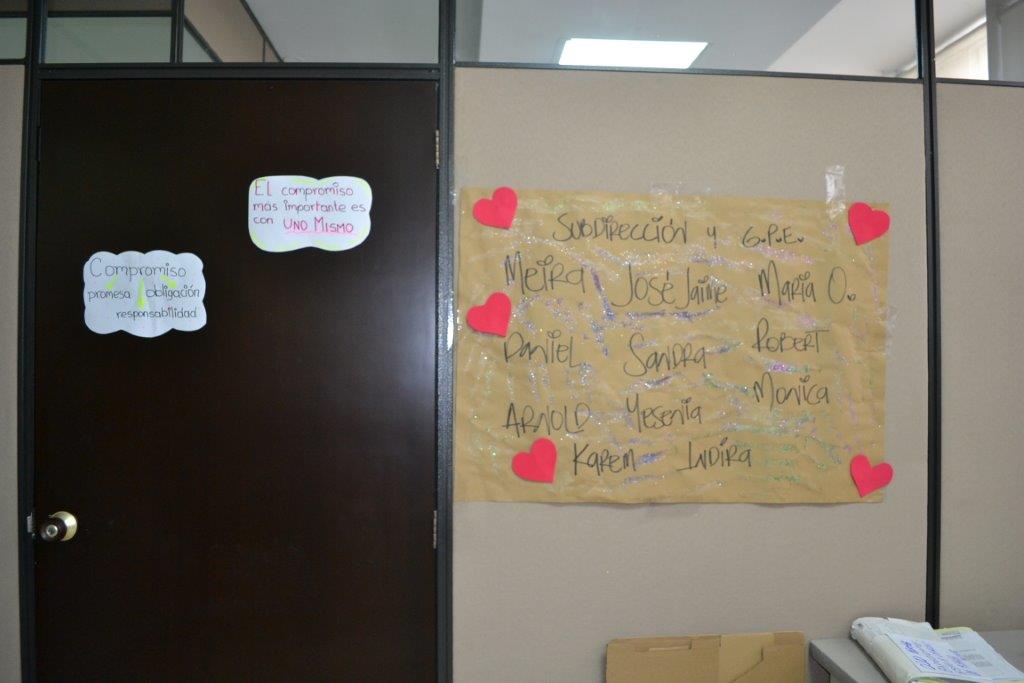 El compromiso
más importante es
con UNO MISMO
Compromiso
promesa obligación
responsabilidad
SUBDIRECCIÓN y G.P.E.
Meira José Jaime Maria O.
DANIEL Sandra ROBERT
ARNOLD Yesenia Monica
Karem Indira